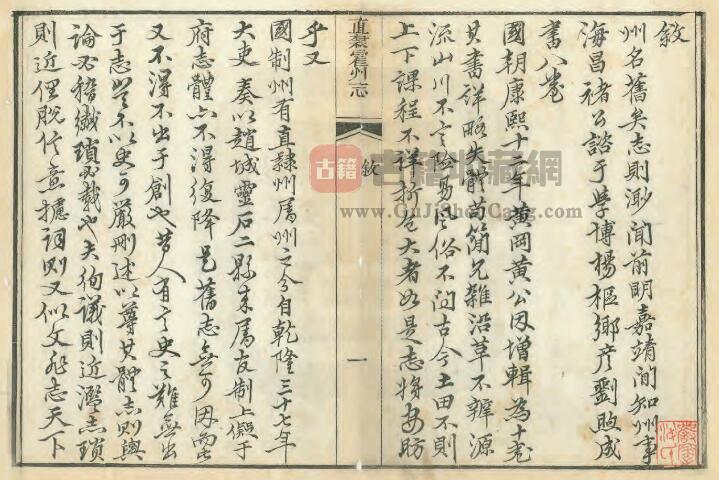 敘
州名舊矣志則渺聞前明嘉靖間知州事
海昌褚公諮于學博楊樞鄉彦劉煦成
書八卷
國朝康熙十二年黄岡黄公因增輯為十卷
其書詳略失體苟簡冗雜沿革不辨源
流山川不言險易風俗不問古今土田不則
上下課程不詳折色大者如是志將安昉
乎又
國制州有直隸州屬州之今自乾隆三十七年
大吏奏以趙城靈石二縣來屬友制上儗于
府志體亦不得復降是舊志無可因而
又不得不出于創也昔人有言史之難無出
于志豈不以史可嚴刪述以尊其體志則與
論必稽纖瑣必載也夫徇議則近濫志瑣
則近俚脫任意摅詞則又似文非志天下
直隸霍州志
敘
一
古籍
古籍收藏網
www.GuJiShouCang.com